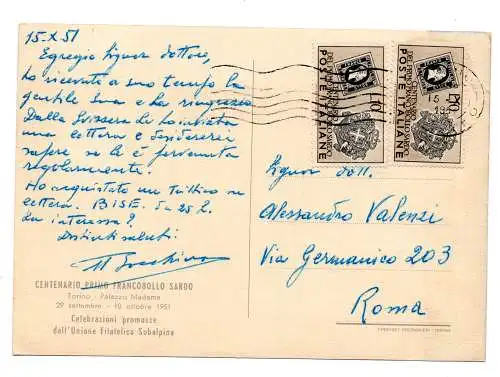 15.X.51
Egregio Signor Dottore,
ho ricevuto a suo tempo la
gentile Sua e La ringrazio
Dalla Svizzera Le ho inviato
una lettera e desidererei
sapere se Le è pervenuta
regolarmente.
Ho acquistato un su
lettera. BISE. 5 e 25 L.
La interessa?
Distinti saluti.
CENTENARIO PRIMO FRANCOBOLLO SARDO
Torino - Palazzo Madama
29 settembre - 10 ottobre 1951
Celebrazioni promosse
dall'Unione Filatelica Subalpina
POSTE ITALIANE
POSTE ITALIANE
20
15
Signor dott.
Alessandro Valenzi
Via Germanico 203
Roma